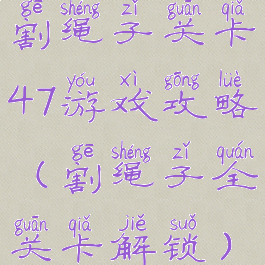 gē shéng zǐ guān qiǎ
割绳子关卡
yóu xì gōng lüè
47游戏攻略
gē shéng zǐ quán
（割绳子全
guān qiǎ jiě suǒ
关卡解锁）